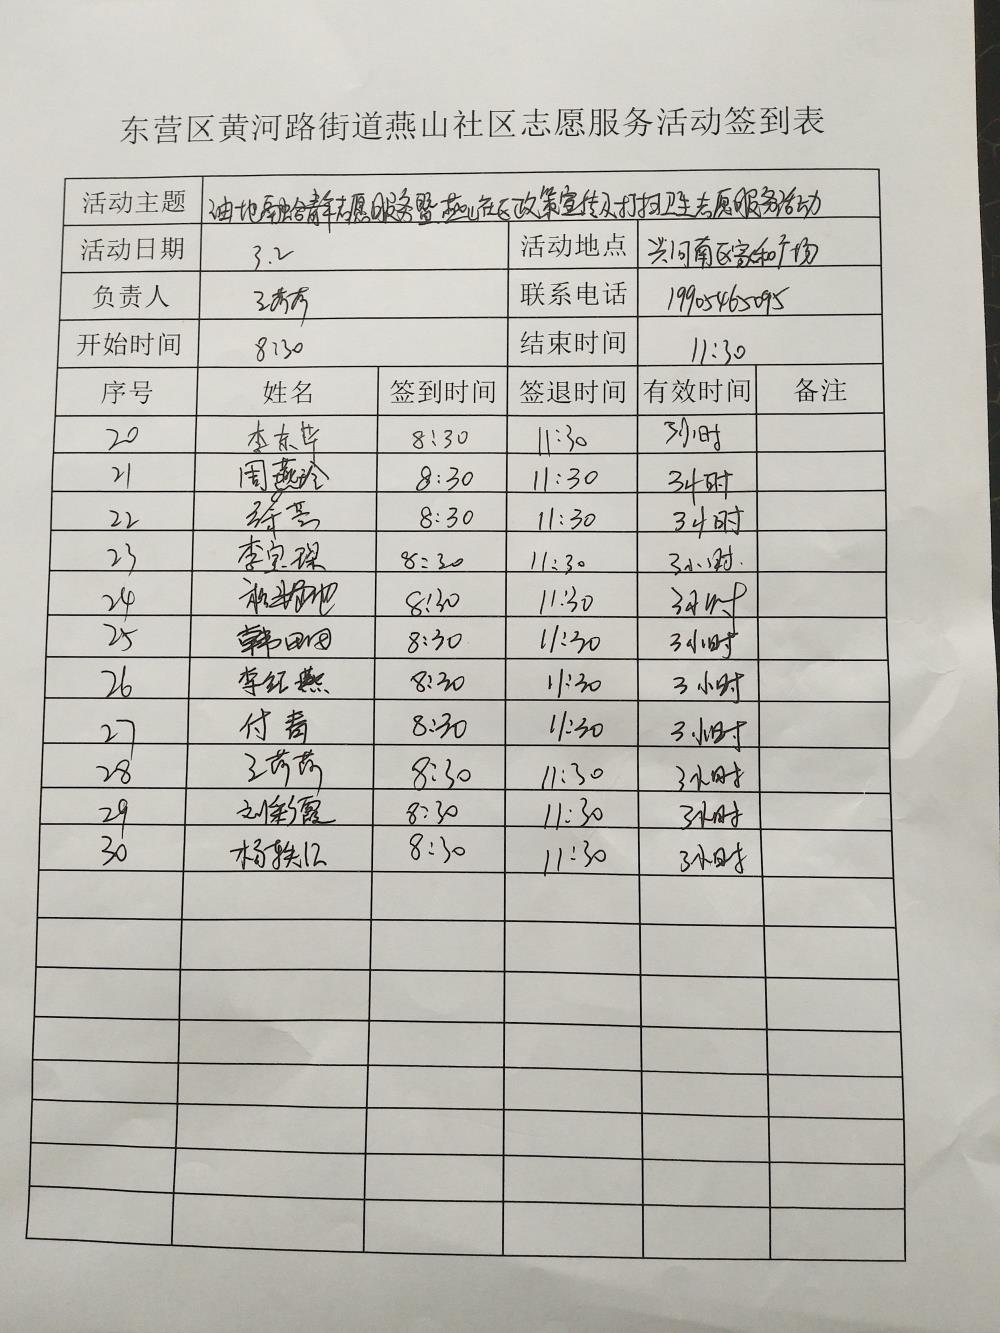 东营区黄河路街道燕山社区志愿服务活动签到表
活动主题 油地融合青年志愿服务暨燕山社区政策宣传及打扫卫生志愿服务活动
活动日期 3.2 活动地点 兴河南区富和广场
负责人 王芳芳 联系电话 19905465095
开始时间 8:30 结束时间 11:30
序号 姓名 签到时间 签退时间 有效时间 备注
20 李东华 8:30 11:30 3小时
21 周燕玲 8:30 11:30 3小时
22 徐亮 8:30 11:30 3小时
23 李宝琛 8:30 11:30 3小时
24 8:30 11:30 3小时
25 韩田田 8:30 11:30 3小时
26 李红燕 8:30 11:30 3小时
27 付春 8:30 11:30 3小时
28 王芳芳 8:30 11:30 3小时
29 刘彩霞 8:30 11:30 3小时
30 8:30 11:30 3小时